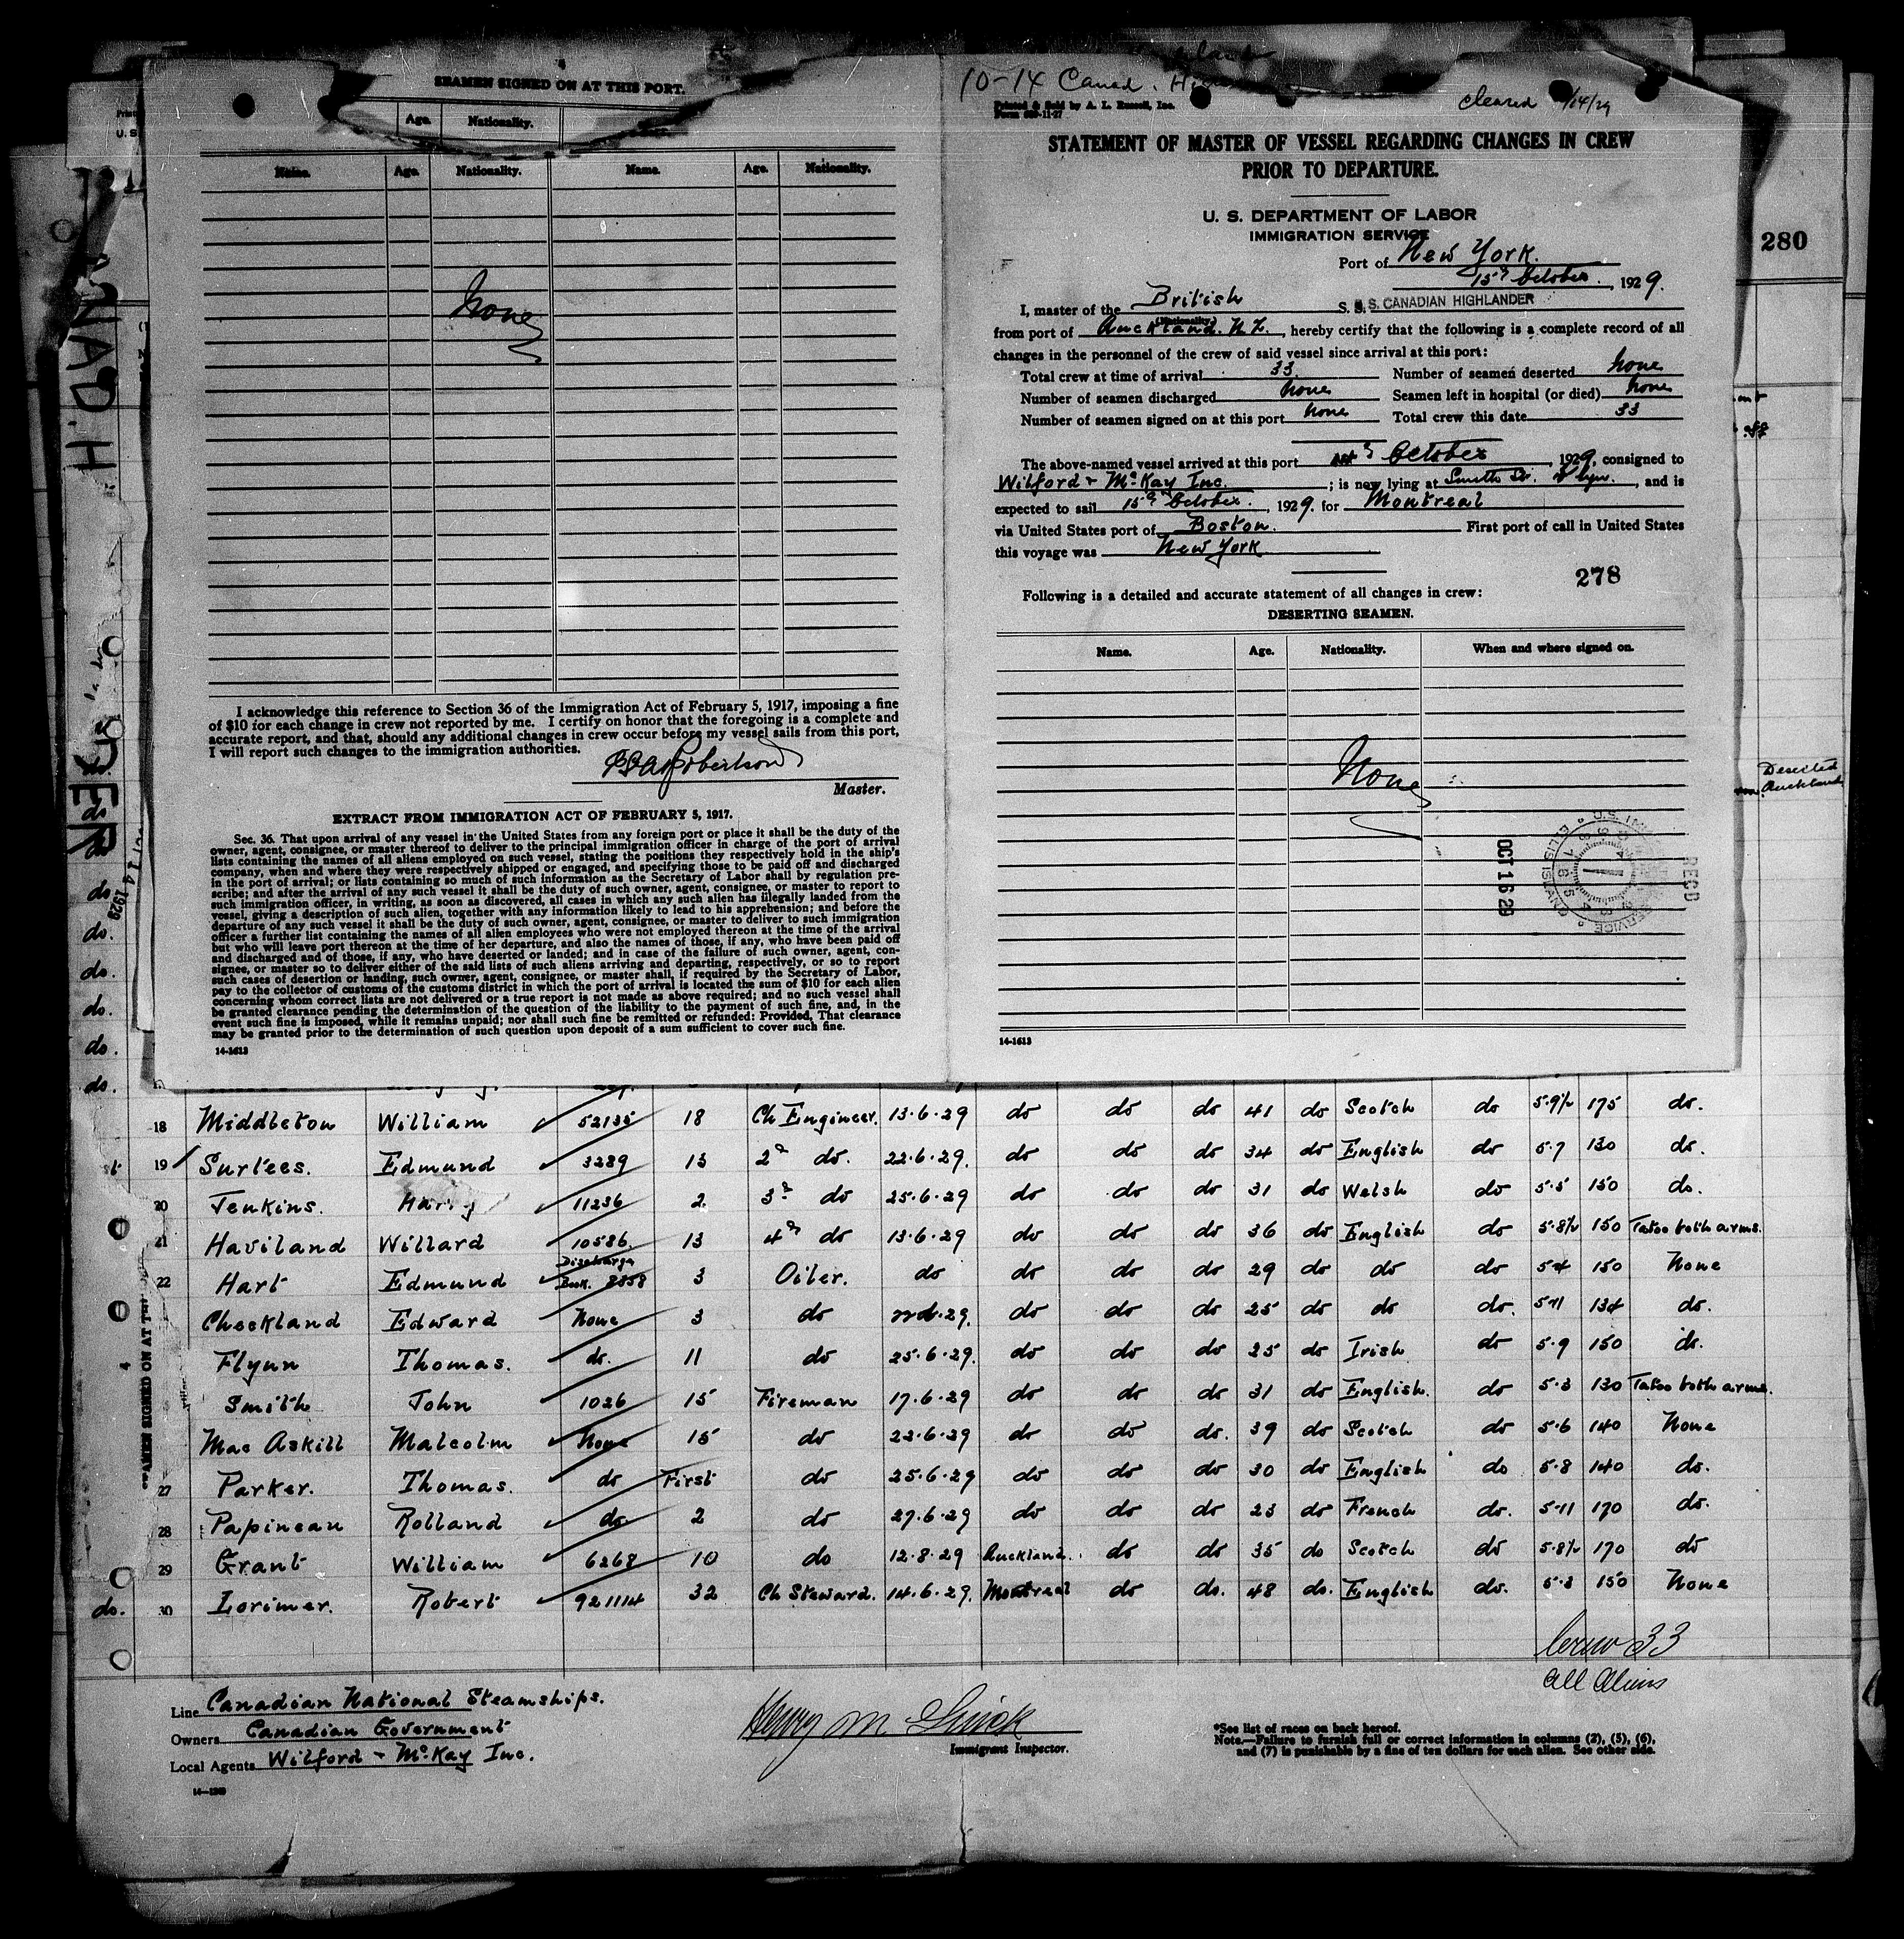 SEAMEN SIGNED ON AT THIS PORT.
Age. Nationality.
Name. Age. Nationality. Name. Age. Nationality.
None
I acknowledge this reference to Section 36 of the Immigration Act of February 5, 1917, imposing a fine
of $10 for each change in crew not reported by me. I certify on honor that the foregoing is a complete and
accurate report, and that, should any additional changes in crew occur before my vessel sails from this port,
I will report such changes to the immigration authorities.
Robertson
Master.
EXTRACT FROM IMMIGRATION ACT OF FEBRUARY 5, 1917.
Sec. 36. That upon arrival of any vessel in the United States from any foreign port or place it shall be the duty of the
owner, agent, consignee, or master thereof to deliver to the principal immigration officer in charge of the port of arrival
lists containing the names of all aliens employed on such vessel, stating the positions they respectively hold in the ship's
company, when and where they were respectively shipped or engaged, and specifying those to be paid off and discharged
in the port of arrival; or lists containing so much of such information as the Secretary of Labor shall by regulation pre-
scribe; and after the arrival of any such vessel it shall be the duty of such owner, agent, consignee, or master to report to
such immigration officer, in writing, as soon as discovered, all cases in which any such alien has illegally landed from the
vessel, giving a description of such alien, together with any information likely to lead to his apprehension; and before the
departure of any such vessel it shall be the duty of such owner, agent, consignee, or master to deliver to such immigration
officer a further list containing the names of all alien employees who were not employed thereon at the time of the arrival
but who will leave port thereon at the time of her departure, and also the names of those, if any, who have been paid off
and discharged and of those, if any, who have deserted or landed; and in case of the failure of such owner, agent, con-
signee, or master so to deliver either of the said lists of such aliens arriving and departing, respectively, or so to report
such cases of desertion or landing, such owner, agent, consignee, or master shall, if required by the Secretary of Labor,
pay to the collector of customs of the customs district in which the port of arrival is located the sum of $10 for each alien
concerning whom correct lists are not delivered or a true report is not made as above required; and no such vessel shall
be granted clearance pending the determination of the question of the liability to the payment of such fine, and, in the
event such fine is imposed, while it remains unpaid; nor shall such fine be remitted or refunded: Provided, That clearance
may be granted prior to the determination of such question upon deposit of a sum sufficient to cover such fine.
14-1613
10-14 Canad.
Cleared
Printed & Sold by A. L. Russell, Inc.
STATEMENT OF MASTER OF VESSEL REGARDING CHANGES IN CREW
PRIOR TO DEPARTURE.
U. S. DEPARTMENT OF LABOR
IMMIGRATION SERVICE
Port of New York.
15th October, 1929.
I, master of the British S. S. CANADIAN HIGHLANDER
(Nationality)
from port of Auckland. N Z., hereby certify that the following is a complete record of all
changes in the personnel of the crew of said vessel since arrival at this port:
Total crew at time of arrival 33. Number of seamen deserted None
Number of seamen discharged None Seamen left in hospital (or died) None
Number of seamen signed on at this port None Total crew this date 33
The above-named vessel arrived at this port October, 1929, consigned to
Wilford & McKay Inc.; is now lying at Smith St. Bklyn., and is
expected to sail 15th October., 1929. for Montreal
via United States port of Boston. First port of call in United States
this voyage was New York
278
Following is a detailed and accurate statement of all changes in crew:
DESERTING SEAMEN.
Name. Age. Nationality. When and where signed on.
None
OCT 16 29
REC'D
14-1613
280
Deserted
Auckland
18 Middleton William 52135 18 Ch Engineer. 13.6.29 do do do 41 do Scotch do 5.9½ 175 do.
19 Surtees. Edmund 3289 13 2d do. 22.6.29. do do do 34 do English do 5.7 130 do.
20 Jenkins. Harry 11236 2. 3d do 25.6.29 do do do 31 do Welsh do 5.5 150 do.
21 Haviland Willard 10586. 13 4th do 13.6.29 do do do 36 do English do 5.8½ 150 Tatoo both arms.
22 Hart Edmund Discharge Book. 8358 3 Oiler. do do do do 29 do do do 5.4 150 None
Checkland Edward None 3 do 22.6.29. do do do 25 do do do. 5.11 134 do.
Flynn Thomas. do. 11 do 25.6.29. do do do 25 do Irish do 5.9 150 do.
Smith John 1026 15 Fireman 17.6.29 do do do 31 do English. do 5.3 130 Tatoo both arms.
Mac Askill Malcolm None 15 do 22.6.29 do do do. 39 do Scotch do 5.6 140 None
27 Parker. Thomas. do First do 25.6.29 do do do 30 do English do 5.8 140 do.
28 Papineau Rolland do 2 do 27.6.29 do do do 23 do French do. 5.11 170 do.
29 Grant William 6268 10 do 12.8.29 Auckland. do do 35 do Scotch do 5.8½ 170 do
30 Lorimer. Robert 921114 32 Ch Steward. 14.6.29. Montreal do do. 48 do. English do. 5.3 150 None
Crew 33
All Aliens
Line Canadian National Steamships.
Owners Canadian Government
Local Agents Wilford & McKay Inc.
Immigrant Inspector.
*See list of races on back hereof.
Note.—Failure to furnish full or correct information in columns (2), (5), (6),
and (7) is punishable by a fine of ten dollars for each alien. See other side.